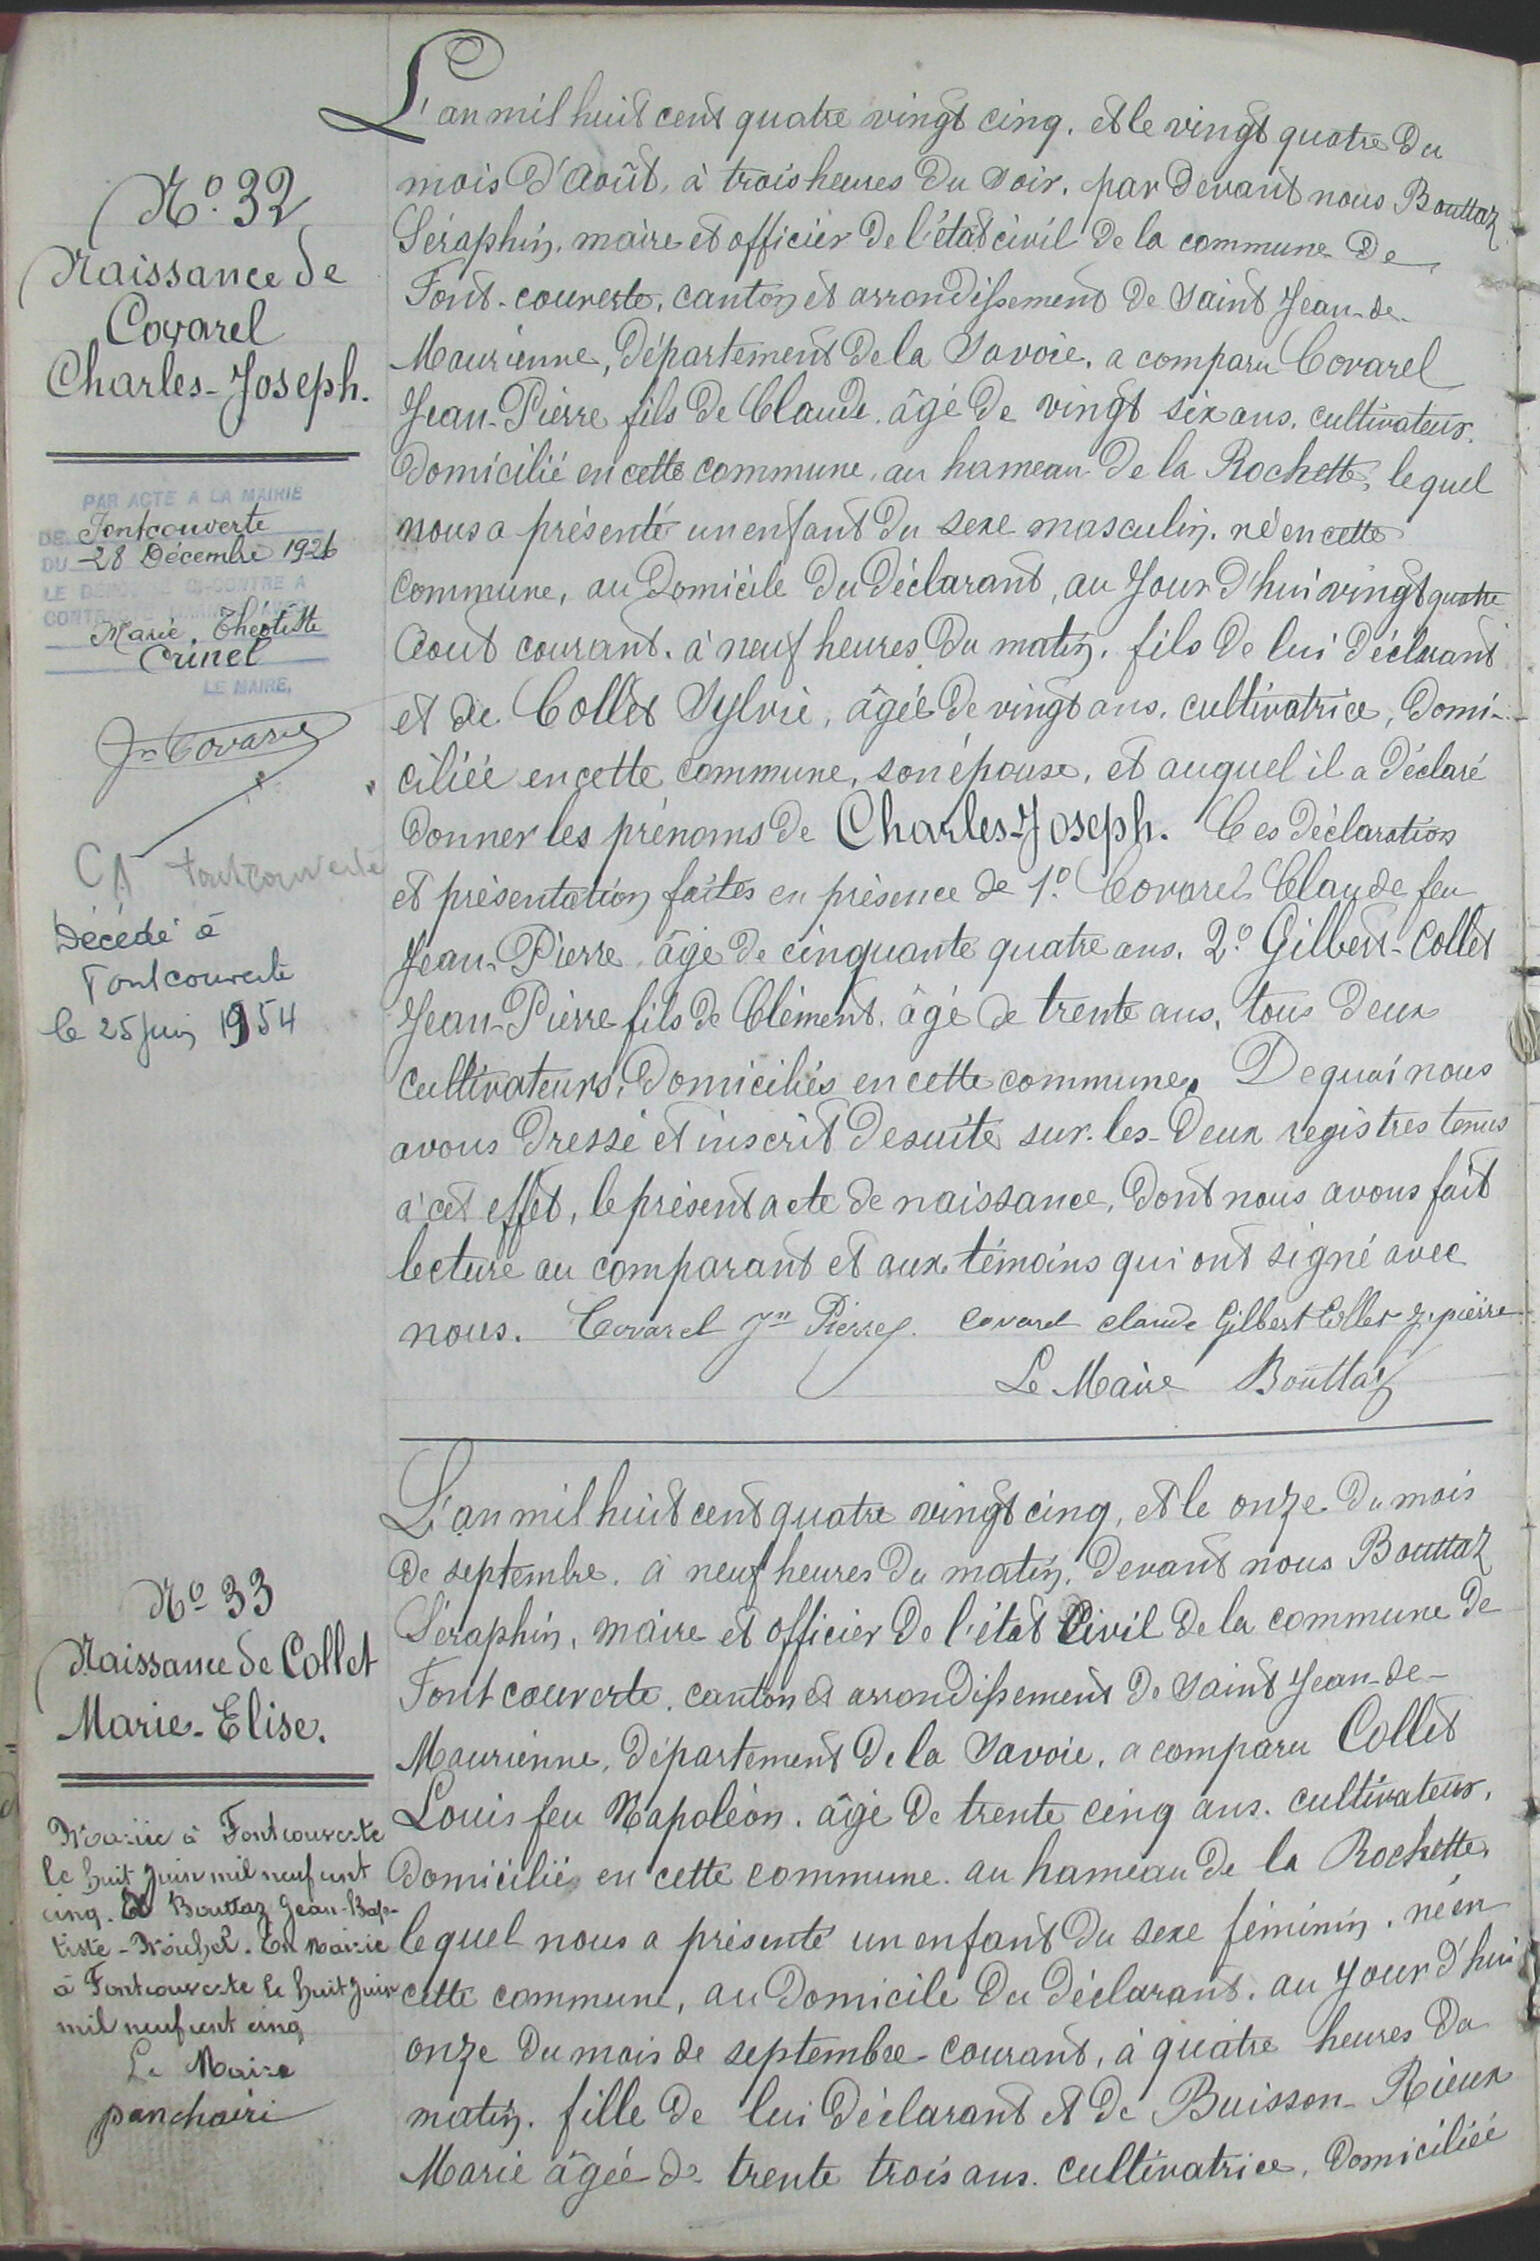 N° 32
Naissance de
Covarel
Charles-Joseph.
PAR ACTE A LA MAIRIE
DE Fontcouverte
DU 28 Décembre 1926
LE CI-CONTRE A
Marié. Théotiste
Crinel
LE MAIRE,
Jn Covarel
CA Fontcouverte
Décédé à
Fontcouverte
le 25 juin 1954
L'an mil huit cent quatre vingt cinq, et le vingt quatre du
mois d'Août, à trois heures du soir, par devant nous Bouttaz
Séraphin, maire et officier de l'état civil de la commune de
Font-couverte, canton et arrondissement de Saint Jean-de-
Maurienne, département de la Savoie, a comparu Covarel
Jean-Pierre fils de Claude, âgé de vingt six ans, cultivateur,
domicilié en cette commune, au hameau de la Rochette, lequel
nous a présenté un enfant du sexe masculin, né en cette
commune, au domicile du déclarant, au Jour d'hui vingt quatre
Aout courant, à neuf heures du matin, fils de lui déclarant
et de Collet Sylvie, âgée de vingt ans, cultivatrice, domi-
ciliée en cette commune, son épouse, et auquel il a déclaré
donner les prénoms de Charles-Joseph. Ces déclaration
et présentation faites en présence de 1° Covarel Claude feu
Jean-Pierre, âgé de cinquante quatre ans, 2° Gilbert-Collet
Jean-Pierre fils de Clément, âgé de trente ans, tous deux
cultivateurs, domiciliés en cette commune. De quoi nous
avons dressé et inscrit de suite sur-les-deux registres tenus
à cet effet, le présent acte de naissance, dont nous avons fait
lecture au comparant et aux témoins qui ont signé avec
nous. Covarel Jn Pierre. Covarel claude Gilbert Collet J. pierre
Le Maire Bouttaz
N° 33
Naissance de Collet
Marie-Elise.
Mariée à Fontcouverte
le huit juin mil neuf cent
cinq. à Bouttaz Jean-Bap-
tiste-Michel. En Mairie
à Fontcouverte le huit juin
mil neuf cent cinq
Le Maire
L'an mil huit cent quatre vingt cinq, et le onze du mois
de septembre, à neuf heures du matin, devant nous Bouttaz
Séraphin, maire et officier de l'état Civil de la commune de
Font couverte, canton et arrondissement de Saint Jean-de-
Maurienne, département de la Savoie, a comparu Collet
Louis feu Napoléon, âgé de trente cinq ans, cultivateur,
domicilié en cette commune, au hameau de la Rochette,
lequel nous a présenté un enfant du sexe féminin, né en
cette commune, au domicile du déclarant, au Jour d'hui
onze du mois de septembre-courant, à quatre heures du
matin, fille de lui déclarant et de Buisson-Rieux
Marie âgée de trente trois ans, cultivatrice, domiciliée